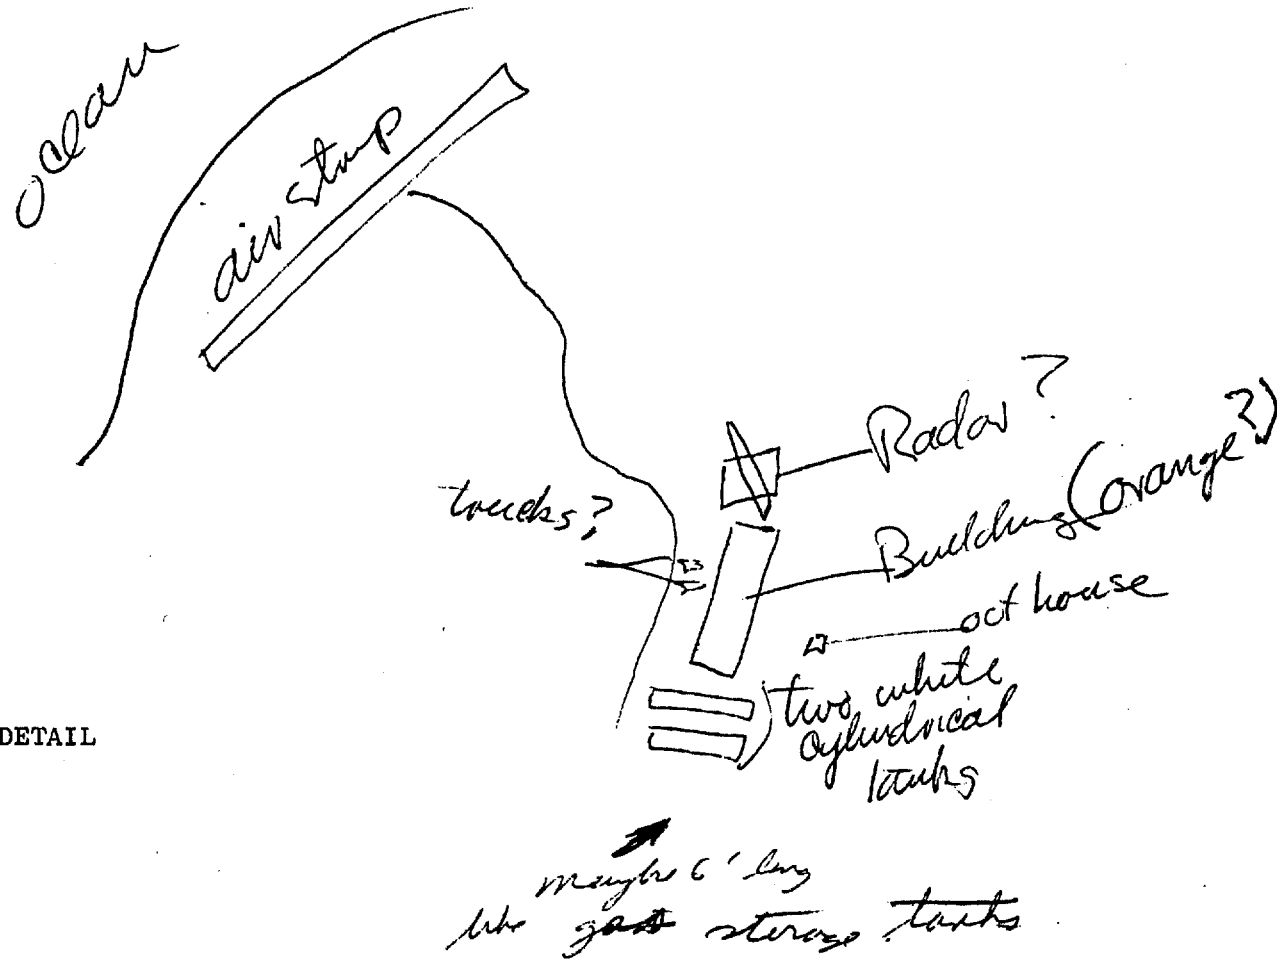 ocean
air strip
Radar?
Building (orange?)
trucks?
out house
two white
cylindrical
tanks
DETAIL
maybe 6' long
like gas storage tanks